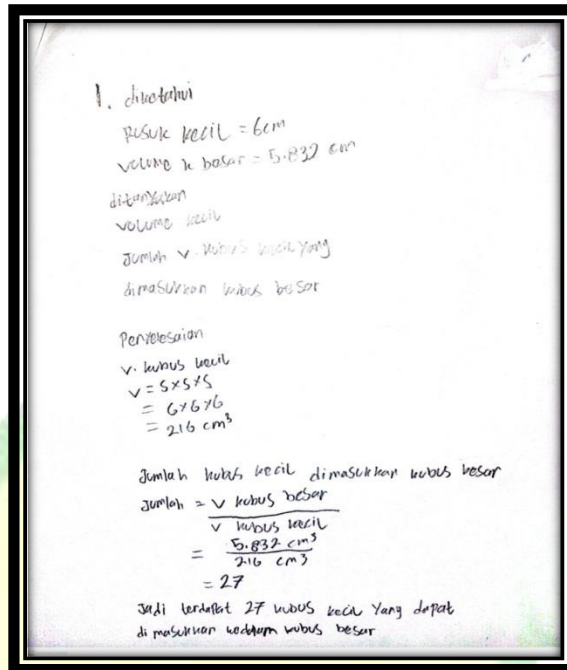 1. diketahui
Rusuk kecil = 6cm
volume k besar = 5.832 cm
ditanyakan
volume kecil
Jumlah v. kubus kecil yang
dimasukkan kubus besar
Penyelesaian
v. kubus kecil
V = S×S×S
= 6×6×6
= 216 cm³
Jumlah kubus kecil dimasukkan kubus besar
Jumlah = V kubus besar
V kubus kecil
= 5.832 cm³
216 cm3
= 27
Jadi terdapat 27 kubus kecil yang dapat
di masukkan kedalam kubus besar